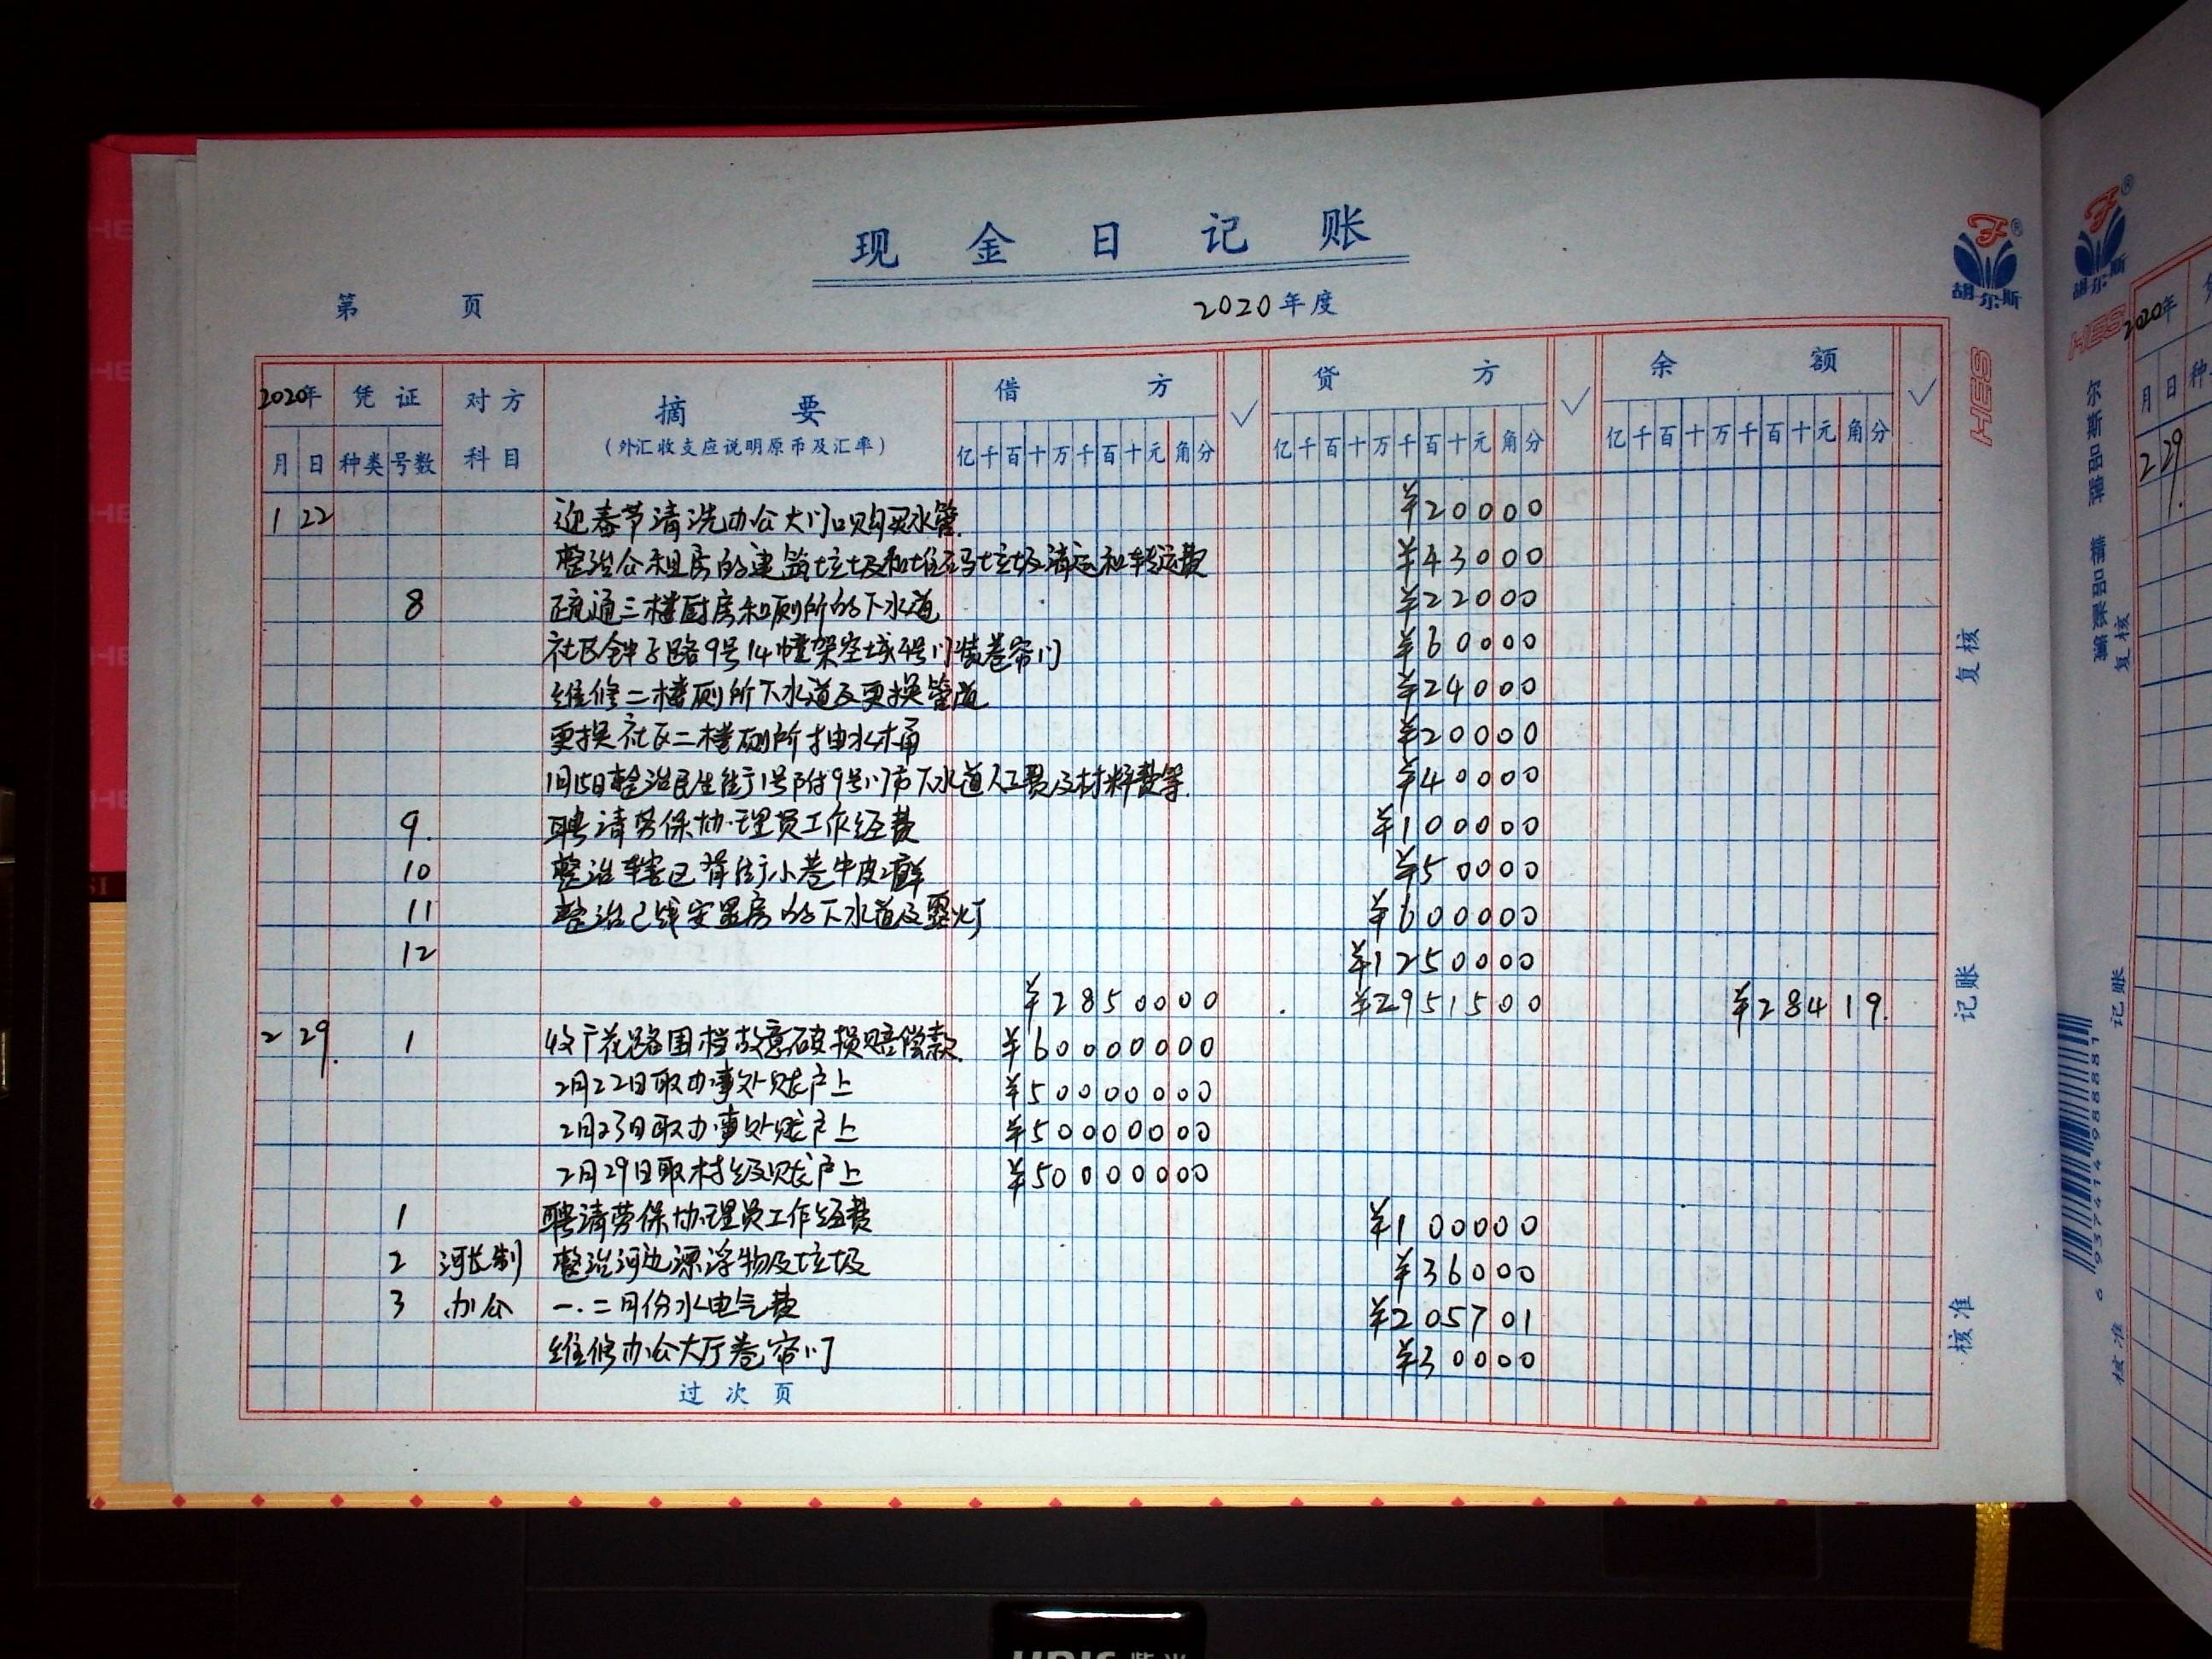 现金日记账
第 页
2020年度
2020年 凭证 对方 摘要 借方 √ 贷方 √ 余额 √
月 日 种类 号数 科目 (外汇收支应说明原币及汇率) 亿千百十万千百十元角分 亿千百十万千百十元角分 亿千百十万千百十元角分
1 22 迎春节清洗办公大门口购买水管. ¥20000
整治公租房的建筑垃圾和堆码垃圾清运和转运费 ¥43000
8 疏通三楼厨房和厕所的下水道 ¥22000
社区钟子路9号14幢架空域4号门装卷帘门 ¥60000
维修二楼厕所下水道及更换管道 ¥24000
更换社区二楼厕所抽水桶 ¥20000
1月15日整治民生街1号附9号门市下水道人工费及材料费等. ¥40000
9. 聘请劳保协理员工作经费 ¥100000
10 整治辖区背街小巷牛皮癣 ¥50000
11 整治已线安置房的下水道及路灯 ¥600000
12 ¥1250000
¥2850000 ¥2951500 ¥28419.
2 29. 1 收广花路围档故意破损赔偿款. ¥60000000
2月22日取办事处账户上 ¥50000000
2月23日取办事处账户上 ¥50000000
2月29日取村级账户上 ¥50000000
1 聘请劳保协理员工作经费 ¥100000
2 河长制 整治河边漂浮物及垃圾 ¥36000
3 办公 一.二月份水电气费 ¥205701
维修办公大厅卷帘门 ¥30000
过次页
胡尔斯
HES
复核
记账
核准
胡尔斯
HES
尔斯品牌 精品账簿
复核
记账
核准
6 937414 988881
2020年
月 日 种
2 29